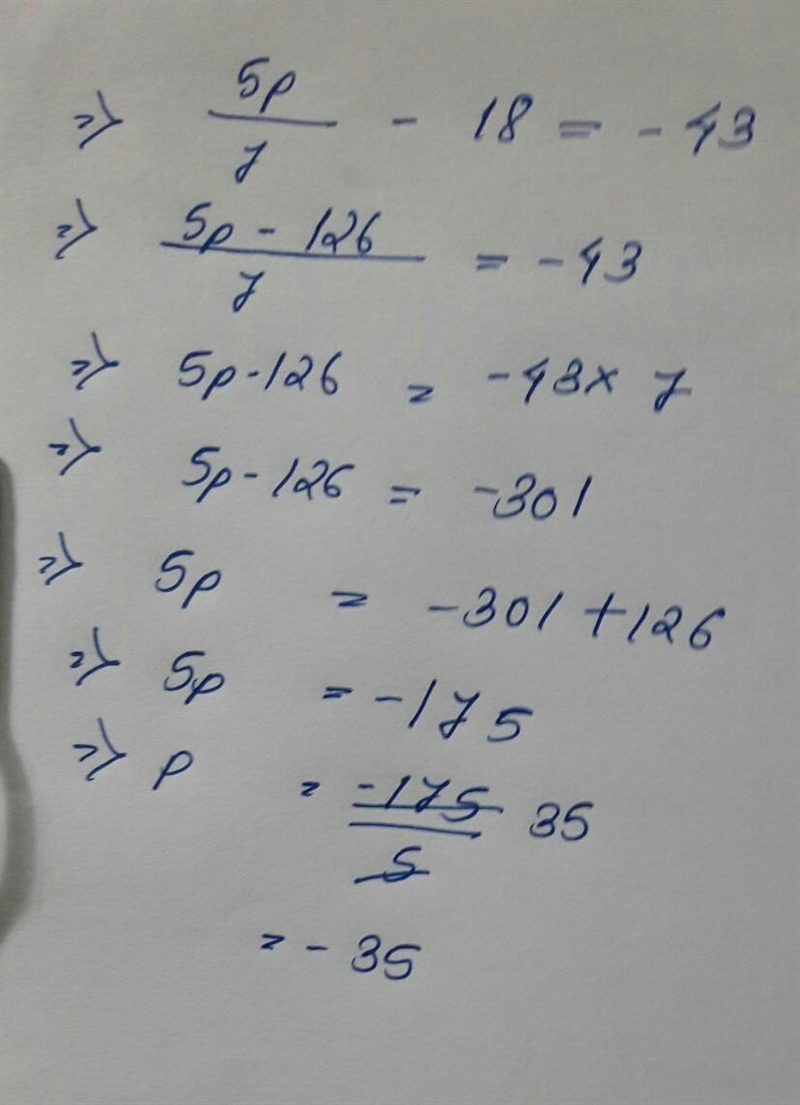 ⇒ 5p/7 - 18 = -43
⇒ 5p - 126/7 = -43
⇒ 5p - 126 = -43 × 7
⇒ 5p - 126 = -301
⇒ 5p = -301 + 126
⇒ 5p = -175
⇒ p = -175/5 35
= -35